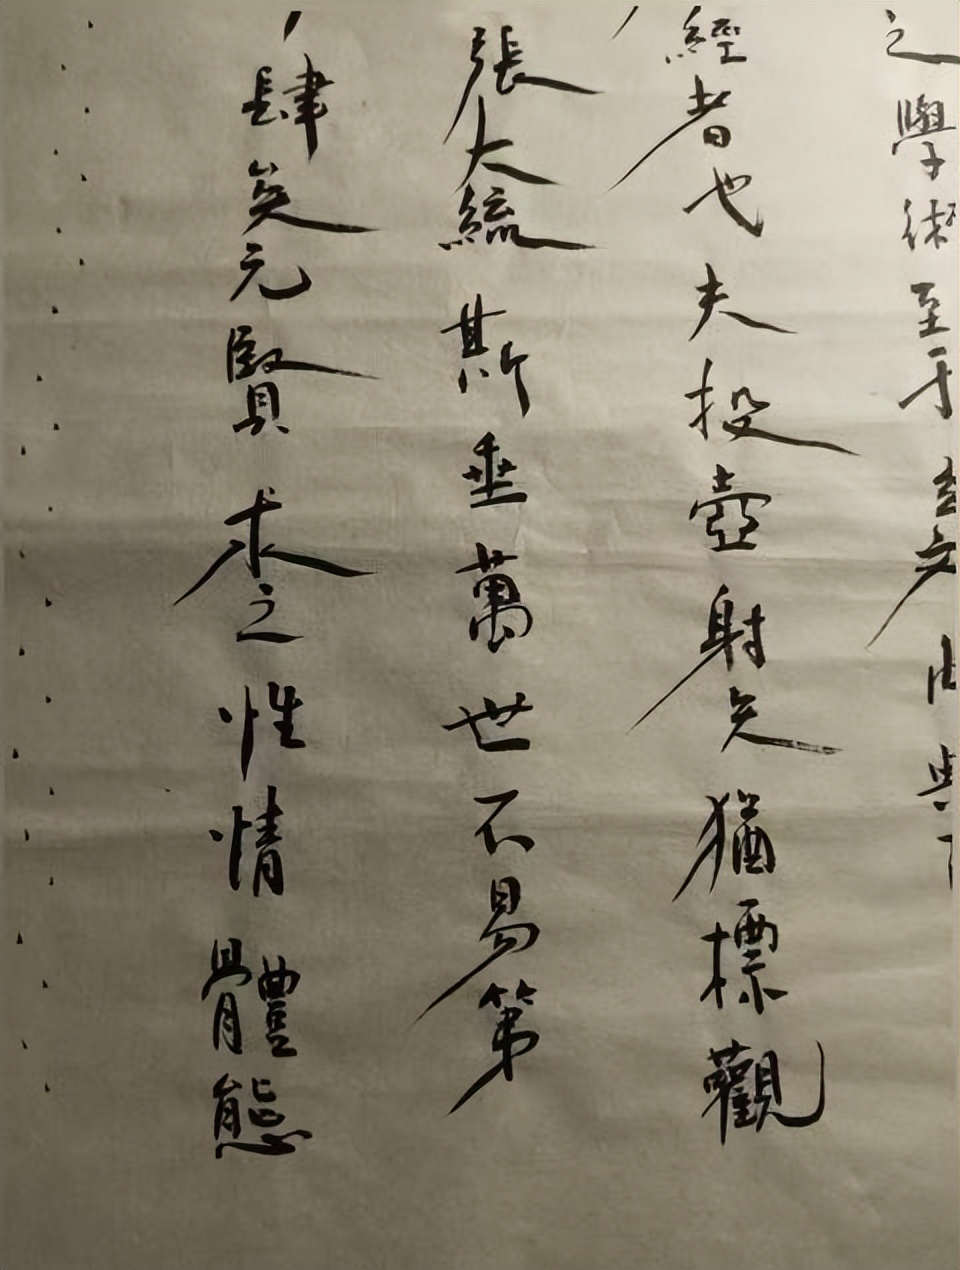 之學術至于
經者也夫投壺射矢猶標觀
張大統斯垂萬世不易第
肆矣元賢求之性情體態